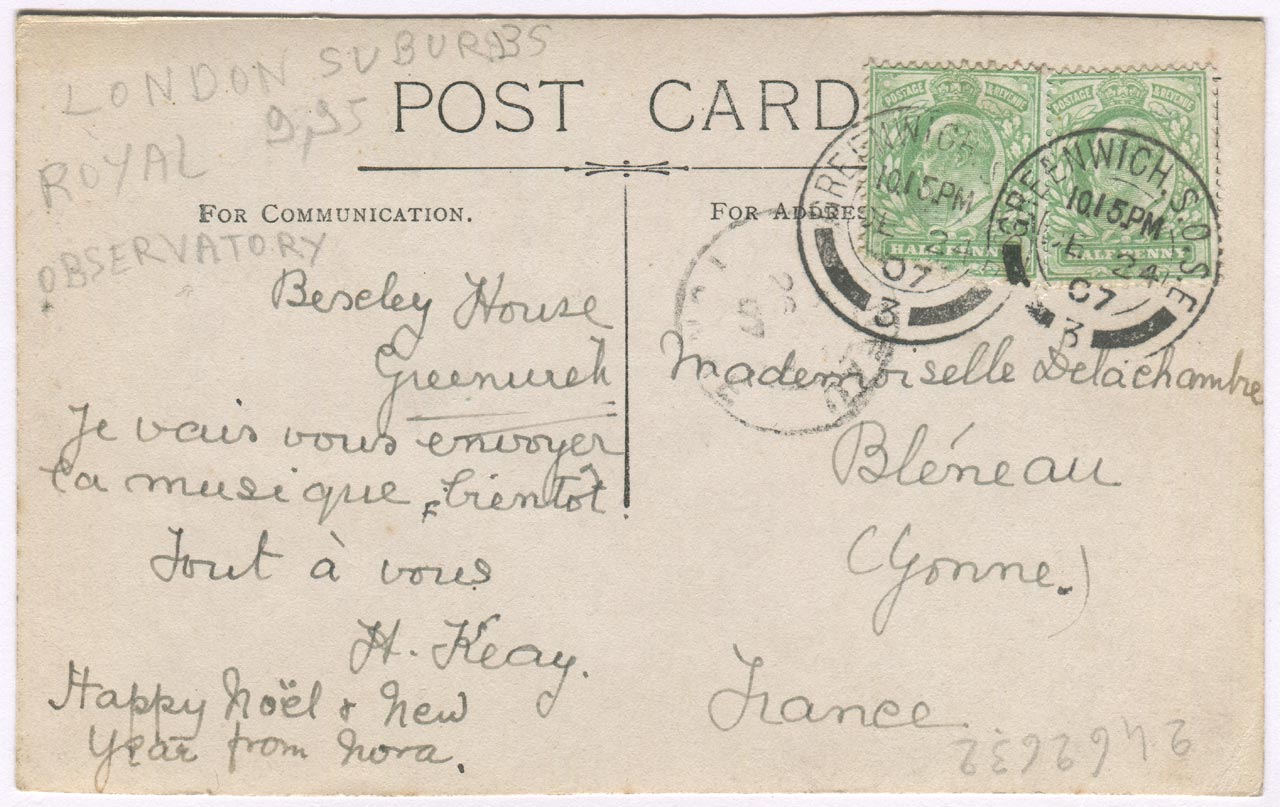 LONDON SUBURBS
9,95
ROYAL
OBSERVATORY
POST CARD
FOR COMMUNICATION.
FOR ADDRES
POSTAGE & REVENUE
HALFPENNY
POSTAGE & REVENUE
HALFPENNY
GREENWICH.
10.15.PM
DE 24
07
3
GREENWICH, S.O. S.E
10.15.PM
DE 24
07
3
26
07
House
Greenwich
Je vais vous envoyer
la musique bientôt
Tout à vous
H. Keay.
Happy Noël & New
Year from Nora.
Mademoiselle Delachambre
Bléneau
(Yonne.)
France
2462632